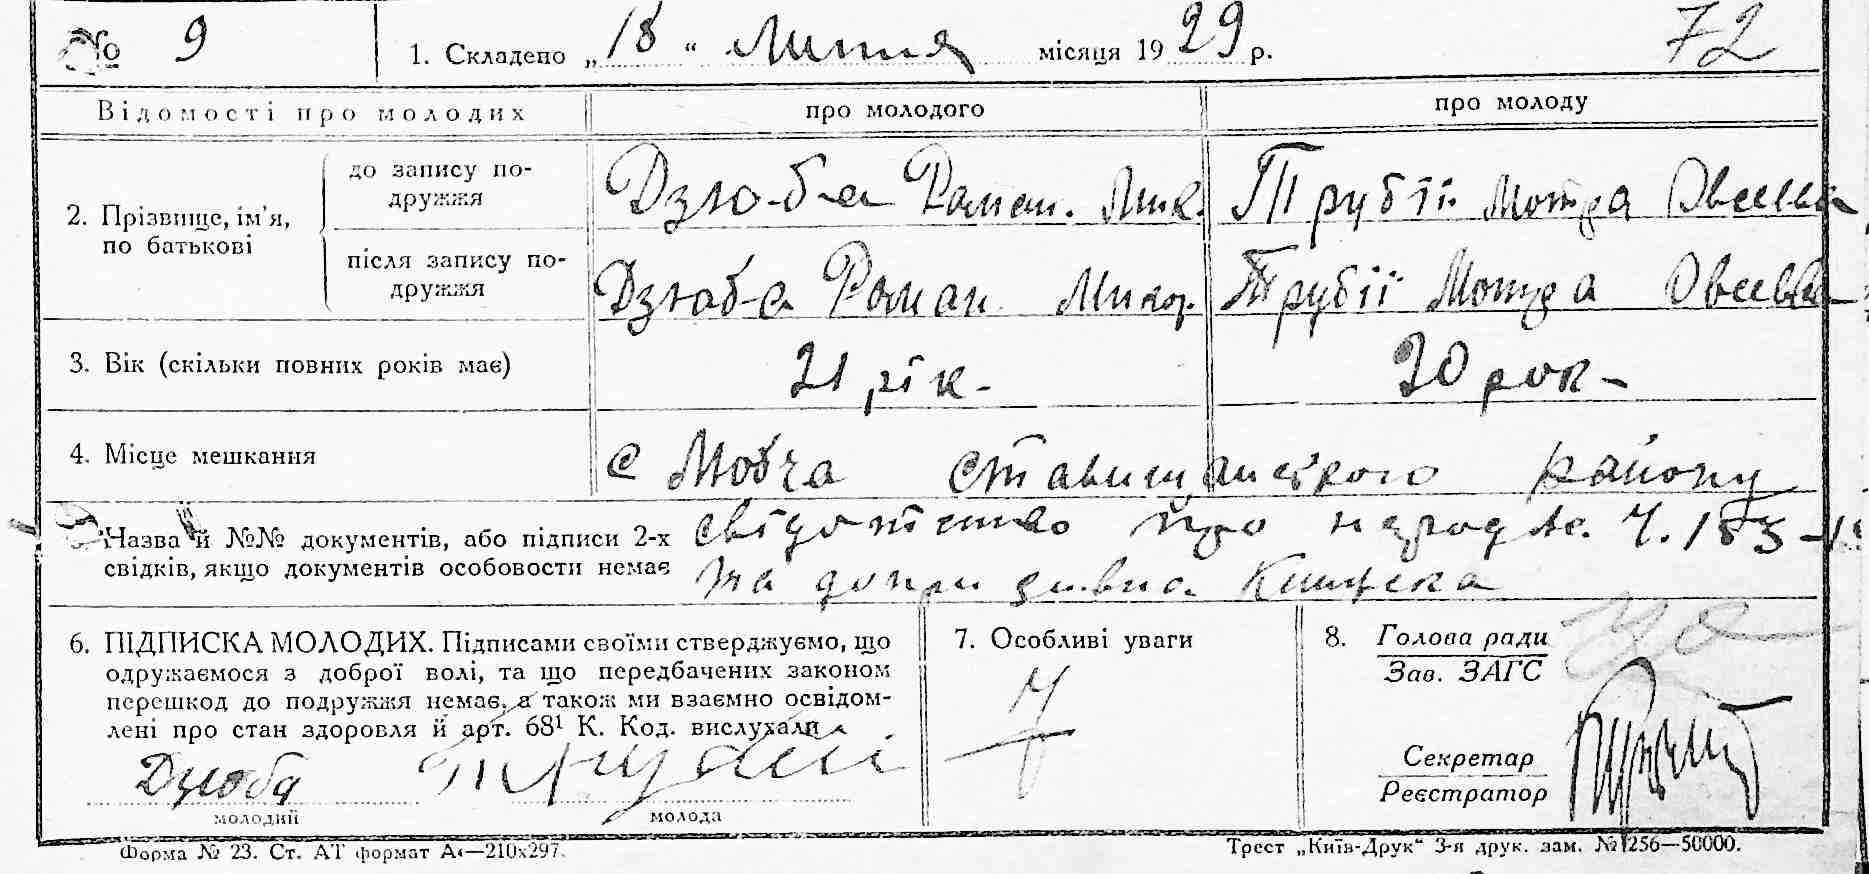 № 9 1. Складено „18“ Липня місяця 1929 р. 72
Відомості про молодих про молодого про молоду
2. Прізвище, ім’я, по батькові
до запису подружжя Дзюба Роман. Мик. Трубії Мотра Овсеевна
після запису подружжя Дзюба Роман Микол. Трубії Мотра Овсеевна
3. Вік (скільки повних років має) 21 рік - 20 рок -
4. Місце мешкання с Мовча Ставищанського району
Назва й №№ документів, або підписи 2-х свідоцтво про народж. Ч. 183
свідків, якщо документів особовости немає та допризивна Книжка
6. ПІДПИСКА МОЛОДИХ. Підписами своїми стверджуємо, що
одружаємося з доброї волі, та що передбачених законом
перешкод до подружжя немає, а також ми взаємно освідом-
лені про стан здоров'я й арт. 68¹ К. Код. вислухали
Дзюба Трубії
молодий молода
7. Особливі уваги
8. Голова ради
Зав. ЗАГС
Секретар
Реєстратор
Форма № 23. Ст. АТ формат А₄—210х297. Трест „Київ-Друк“ 3-я друк. зам. № 1256—50000.